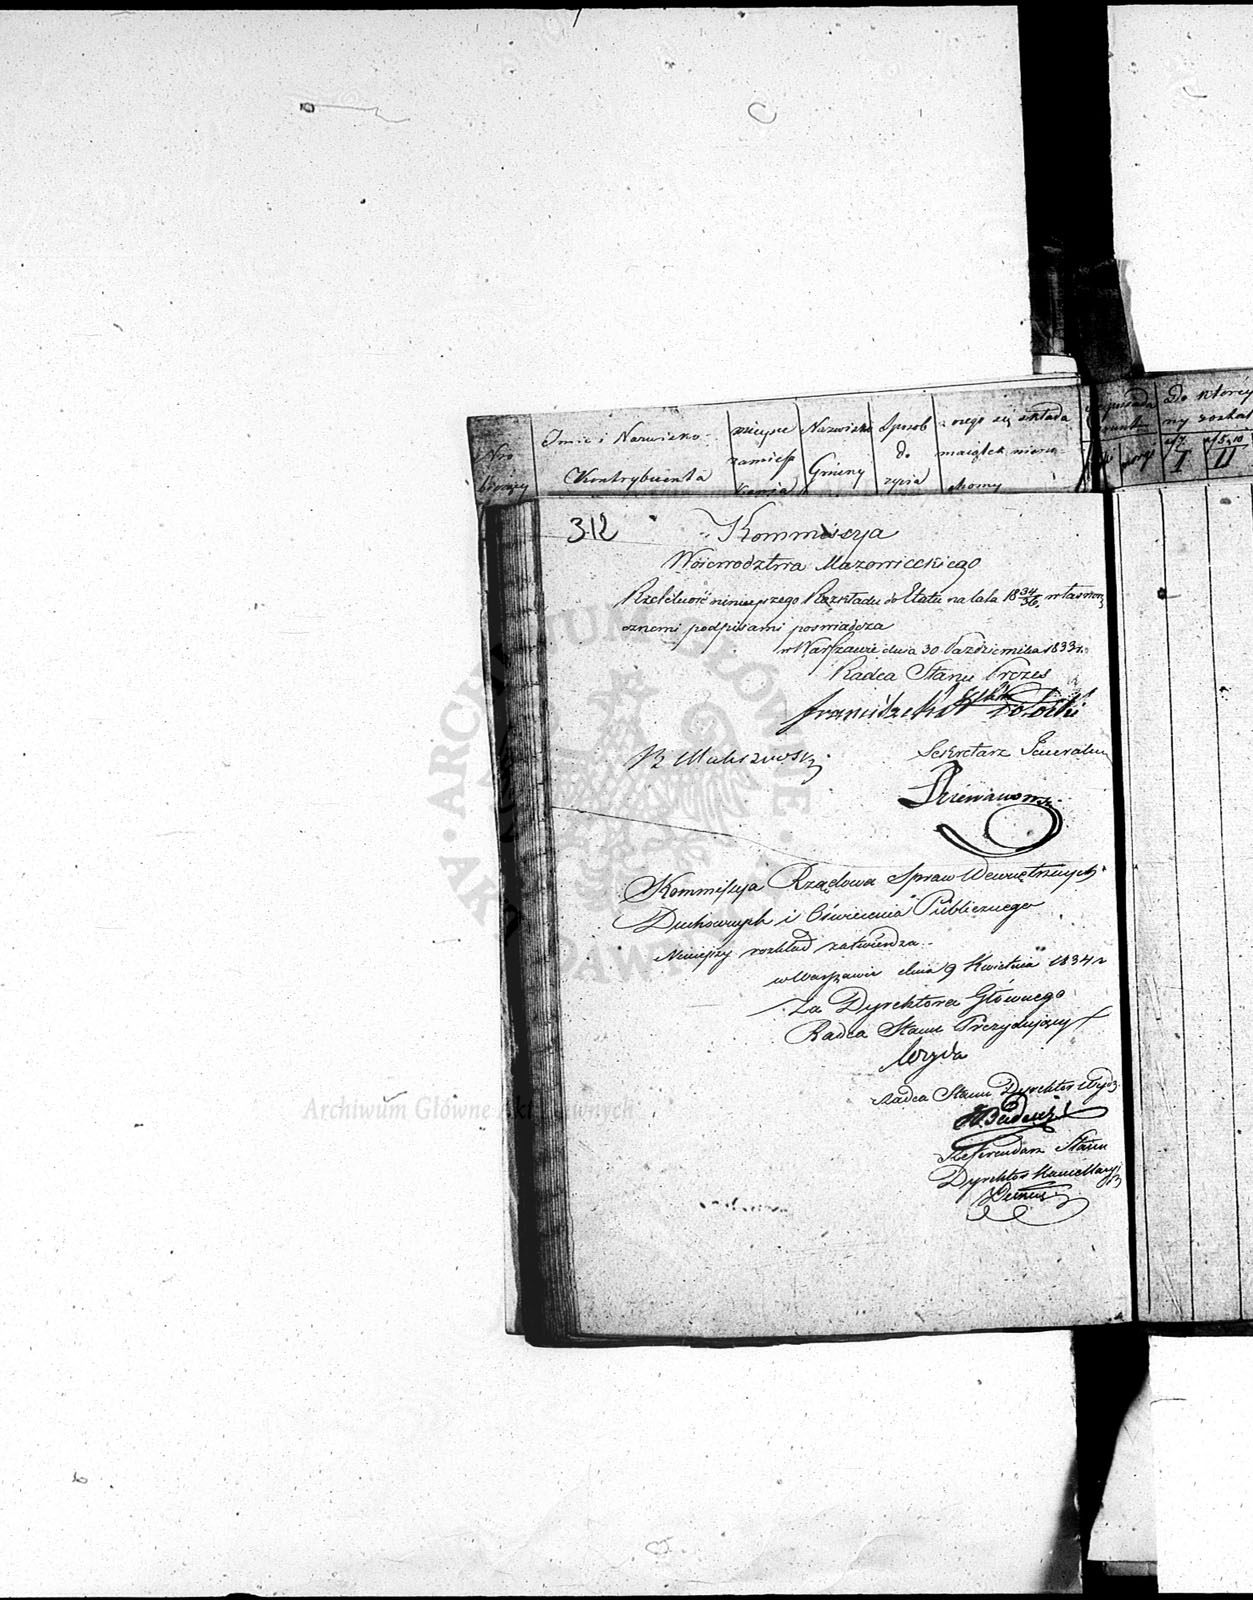 Nro
bieżący
Imie i Nazwisko
Kontrybuenta
mieysce
zamiesz
kania
Nazwisko
Gminy
Sposób
do
życia
z czego się składa
maiątek nieru-
chomy
posiada
morgi
Do którey
N 7. N 8, 10
I II
312
Kommissya
Woiewodztwa Mazowieckiego
Rzetelność ninieyszego Rozkładu do Etatu na lata 18 34/36 własnorę
cznemi podpisami poświadcza
w Warszawie dnia 30 Października 1833 r.
Radca Stanu Prezes
Franciszek Potocki
Sekretarz Generalny
Kommissya Rządowa Spraw Wewnętrznych
Duchownych i Oświecenia Publicznego
Nineijszy rozkład zatwierdza
w Warszawie dnia 9 Kwietnia 1834 r
Za Dyrektora Głównego
Radca Stanu Prezydujący
Radca Stanu Dyrektor Wydz.
Referendarz Stanu
Dyrektor Kancellaryi
ARCHIWUM GŁÓWNE AKT DAWNYCH · W WARSZAWIE
Archiwum Główne Akt Dawnych